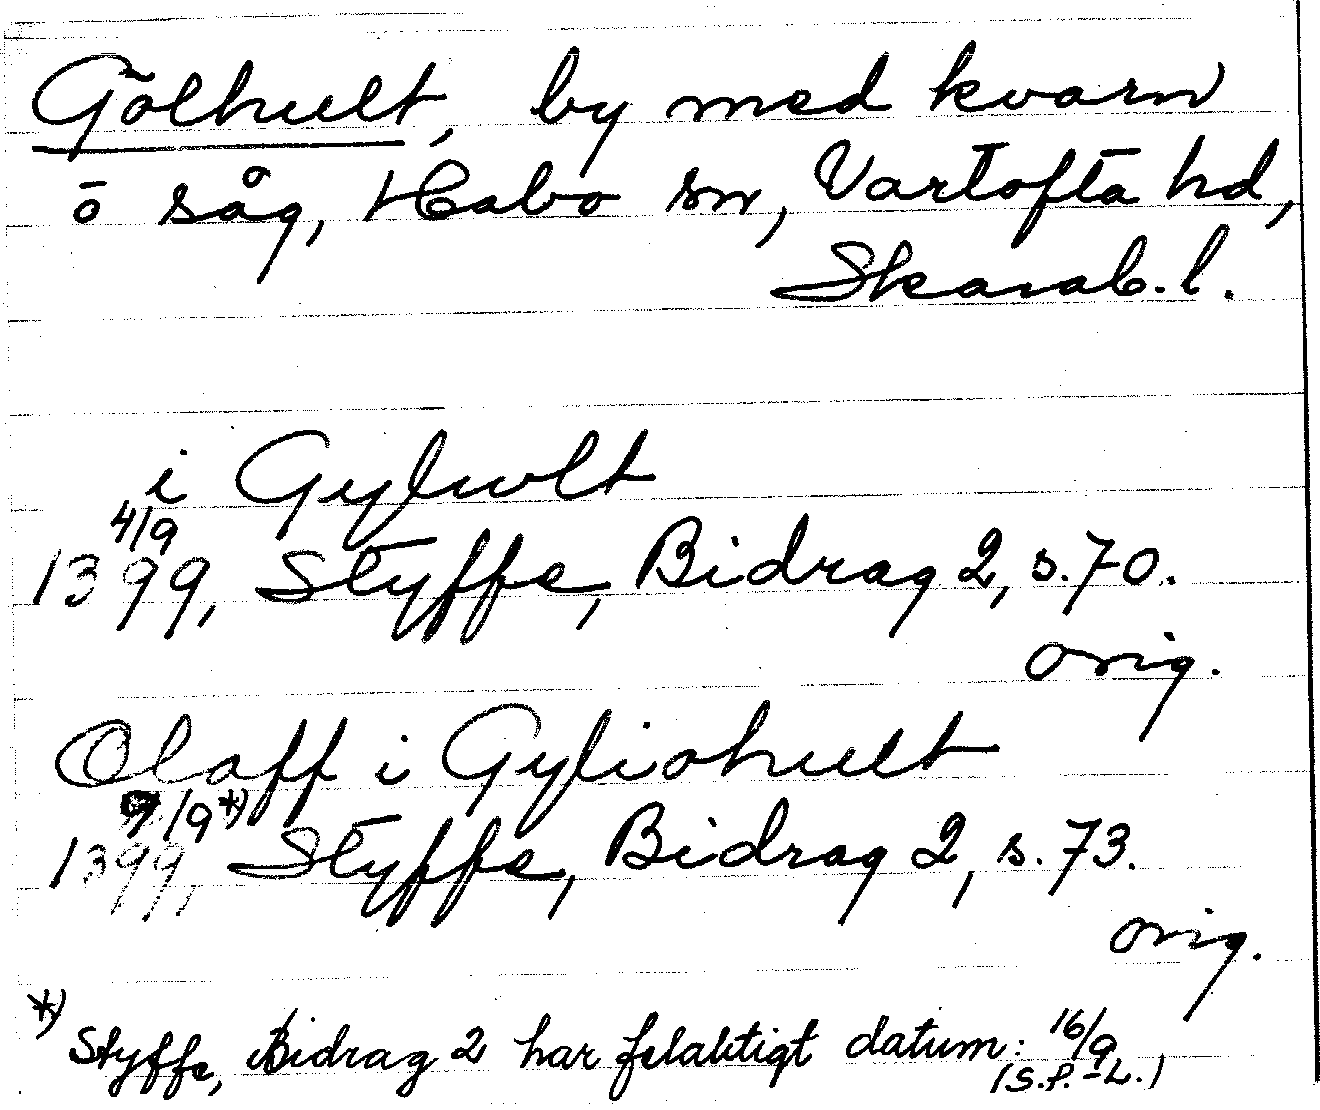 Gölhult, by med kvarn
o såg, Habo sn, Vartofta hd,
Skarab. l.
i Gylwlt
4/9
1399, Styffe, Bidrag 2, s. 70.
orig.
Olaff i Gyliohult
9/9*)
1399, Styffe, Bidrag 2, s. 73.
orig.
*) Styffe, Bidrag 2 har felaktigt datum: 16/9
(S.P.-L.)